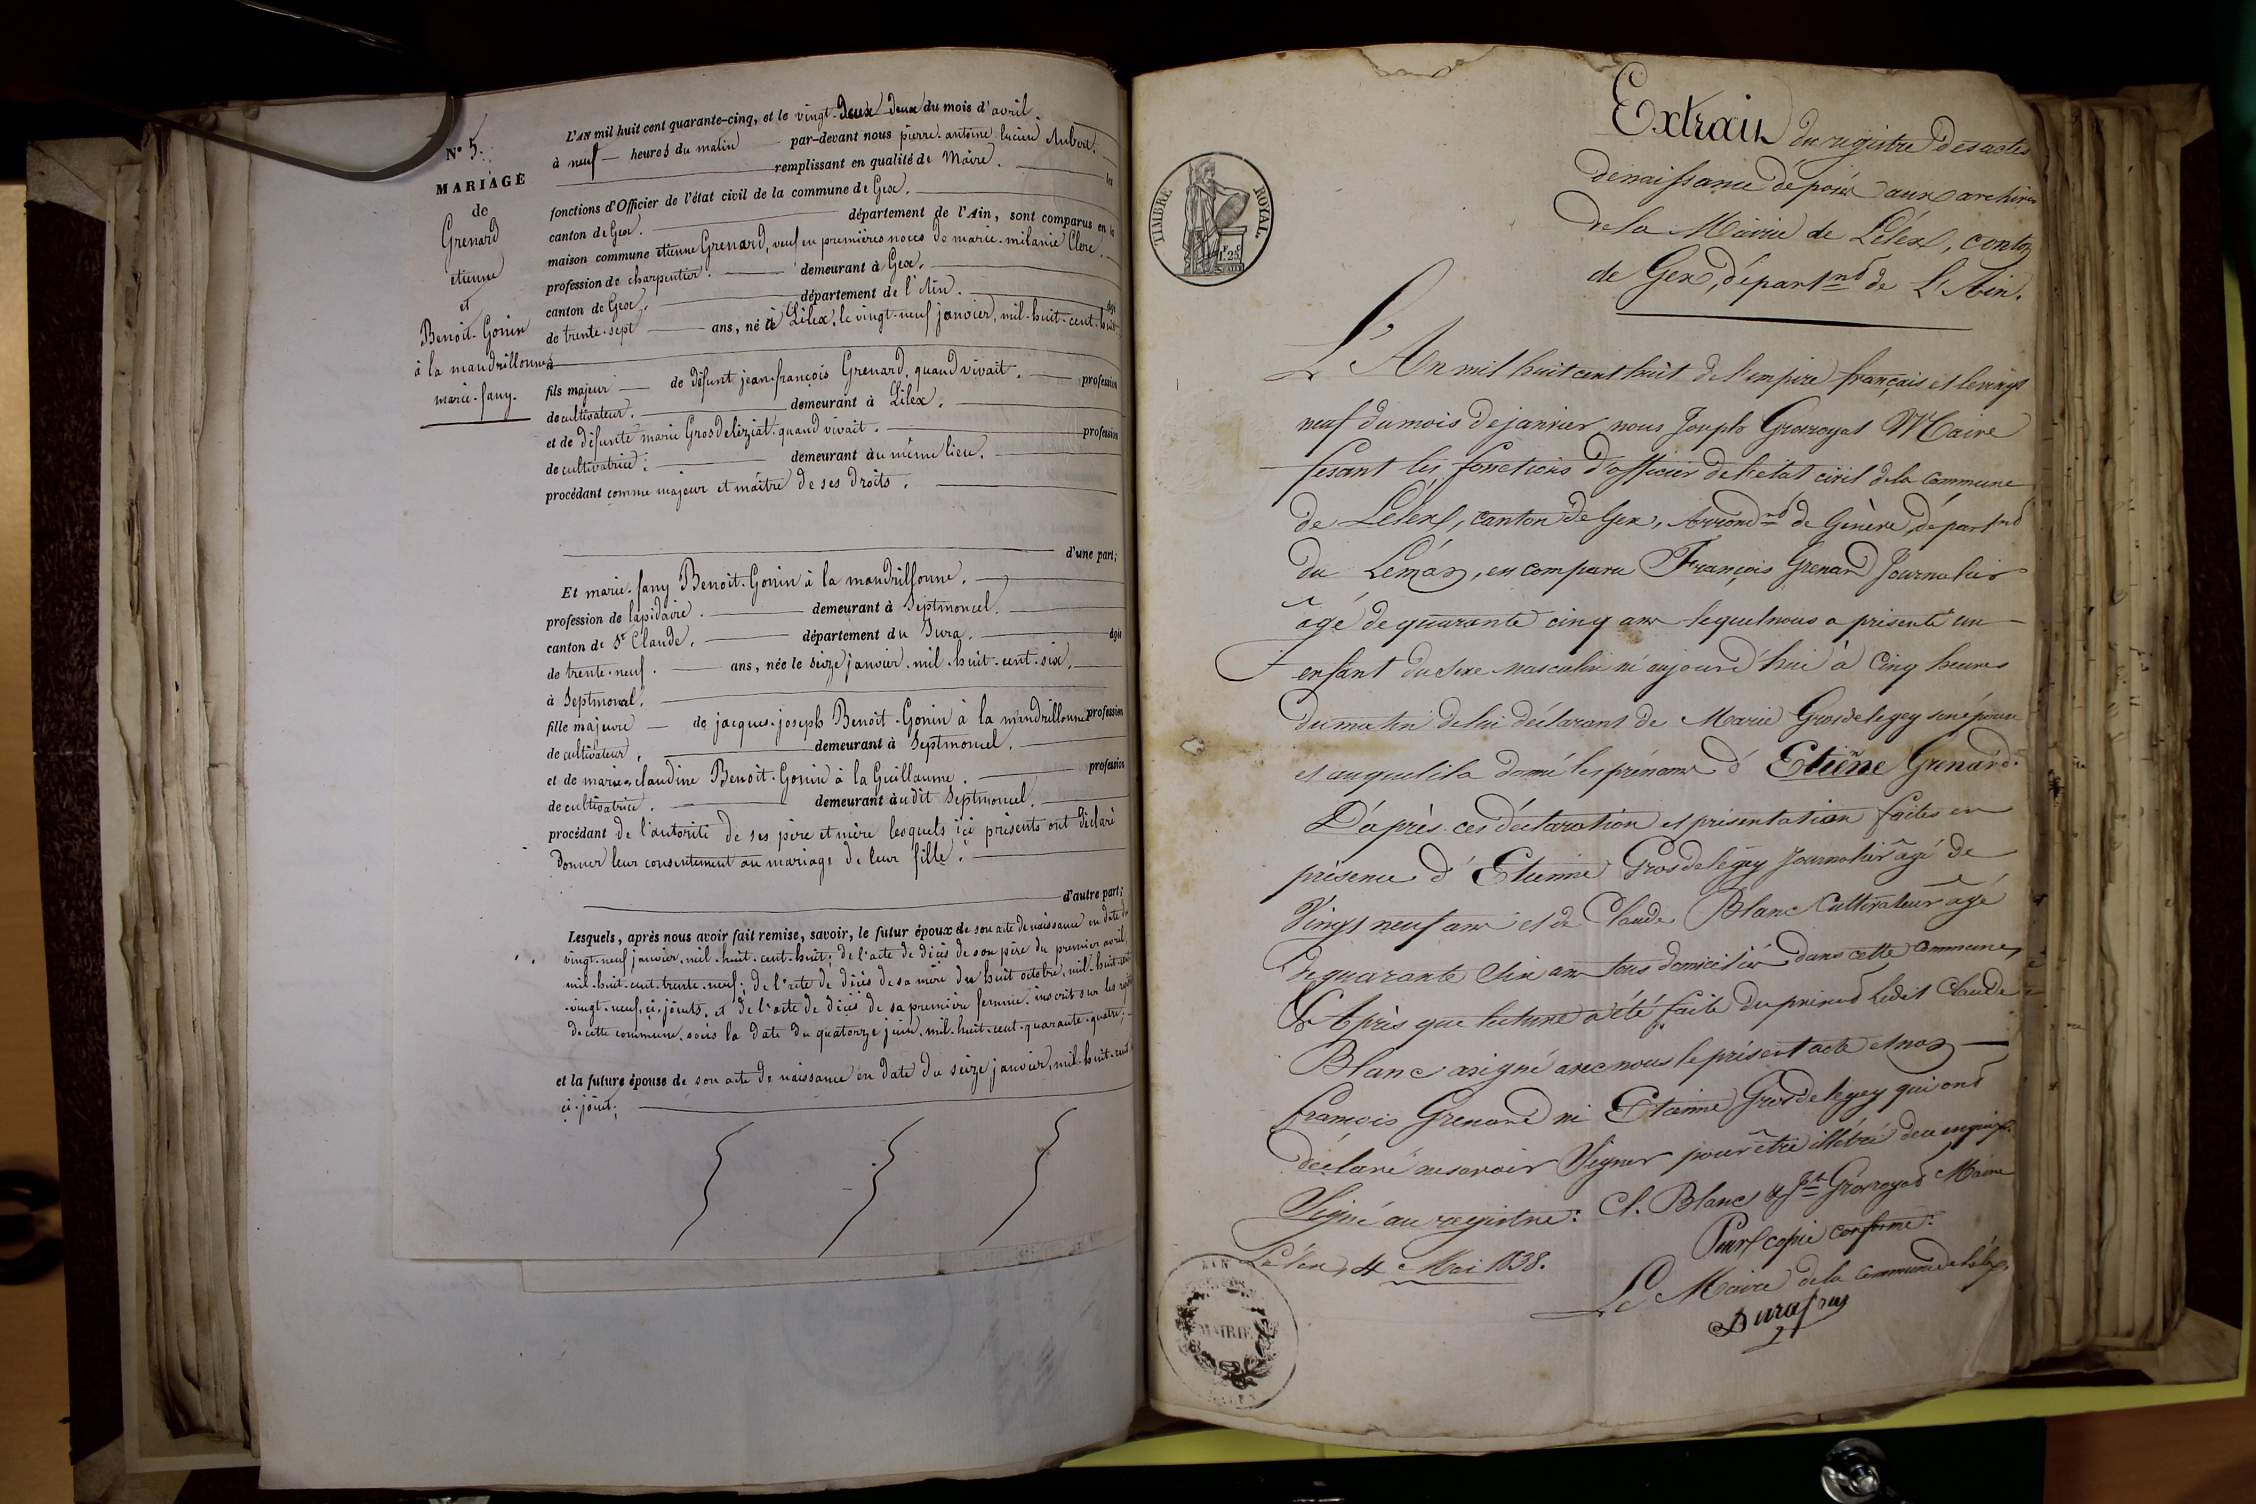 N° 5.
MARIAGE
de
Grenard
etienne
et
Benoit-Gonin
à la mandrillonne
marie-fany.
L'AN mil huit cent quarante-cinq, et le vingt-deux du mois d'avril
à neuf heures du matin par-devant nous pierre-antoine lucien Aubert.
remplissant en qualité de Maire. les
fonctions d'Officier de l'état civil de la commune de Gex.
canton de Gex. département de l'Ain, sont comparus en la
maison commune etienne Grenard, veuf en premières noces de marie-mélanie Clerc.
profession de charpentier. demeurant à Gex.
canton de Gex. département de l'Ain. âgé
de trente-sept ans, né à Lélex, le vingt-neuf janvier, mil-huit-cent-huit
à
fils majeur de défunt jean-françois Grenard, quand vivait. profession
de cultivateur. demeurant à Lélex.
et de défunte marie Grosdelèziat quand vivait. profession
de cultivatrice. demeurant au même lieu.
procédant comme majeur et maître de ses droits.
d'une part;
Et marie-fany Benoit-Gonin à la mandrillonne.
profession de lapidaire. demeurant à Septmoncel.
canton de St Claude. département du Jura. âgée
de trente-neuf. ans, née le seize janvier-mil-huit-cent-six.
à Septmoncel.
fille majeure de jacques-joseph Benoit-Gonin à la mandrillonne profession
de cultivateur, demeurant à Septmoncel.
et de marie-claudine Benoit-Gonin à la Guillaume. profession
de cultivatrice. demeurant audit Septmoncel.
procédant de l'autorité de ses père et mère lesquels ici présents ont déclaré
donner leur consentement au mariage de leur fille.
d'autre part;
Lesquels, après nous avoir fait remise, savoir, le futur époux de son acte de naissance en date du
vingt-neuf janvier-mil-huit-cent-huit; de l'acte de décès de son père du premier avril
mil-huit-cent-trente-neuf; de l'acte de décès de sa mère du huit octobre, mil-huit-cent
-vingt-neuf, ci-joints, et de l'acte de décès de sa première femme inscrit sur les registres
de cette commune, sous la date du quatorze juin, mil-huit-cent-quarante-quatre;
et la future épouse de son acte de naissance en date du seize janvier, mil-huit-cent
ci-joint;
TIMBRE ROYAL
1F. 25C
Extrait du registre des actes
de naissance déposés aux archives
de la Mairie de Lélex, canton
de Gex, départnt de L'Ain.
L'An mil huit cent huit de l'empire français et le vingt
neuf du mois de janvier nous Joseph Grosroyat Maire
fesant les fonctions d'officier de l'etat civil de la commune
de Lélex, canton de Gex, Arrondnt de Genève, départnt
du Léman, est comparu François Grenard Journalier
âgé de quarante cinq ans lequel nous a présenté un
enfant du sexe masculin né aujourd'hui à cinq heures
du matin de lui déclarant de Marie Grosdelegey son épouse
et auquel il a donné les prénoms d'Etiene Grenard.
D'après ces déclaration et présentation faites en
présence d'Etienne Grosdelégey Journalier âgé de
Vingt neuf ans et de Claude Blanc Cultivateur âgé
de quarante ans tous domiciliés dans cette commune,
Après que lecture a été faite du présent ledit Claude
Blanc a signé avec nous le présent acte et non
françois Grenard ni Etienne Grosdelegey qui ont
déclaré ne savoir Signer pour être illétré de ce enquis.
Signé au registre: Cl. Blanc & Jph Grosroyat Maire
Pour copie conforme:
Lélex, 4 Mai 1838.
Le Maire de la commune de Lélex,
Durafour
AIN
MAIRIE